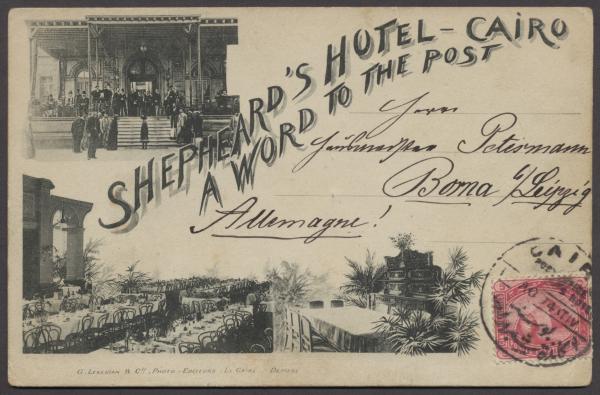 SHEPHEARD'S HOTEL - CAIRO
A WORD TO THE POST
Herrn
Petermann
Borna b/Leipzig
Allemagne!
CAIR
G. LEKEGIAN & Cie, PHOTO - EDITEURS - LE CAIRE DEPOSE